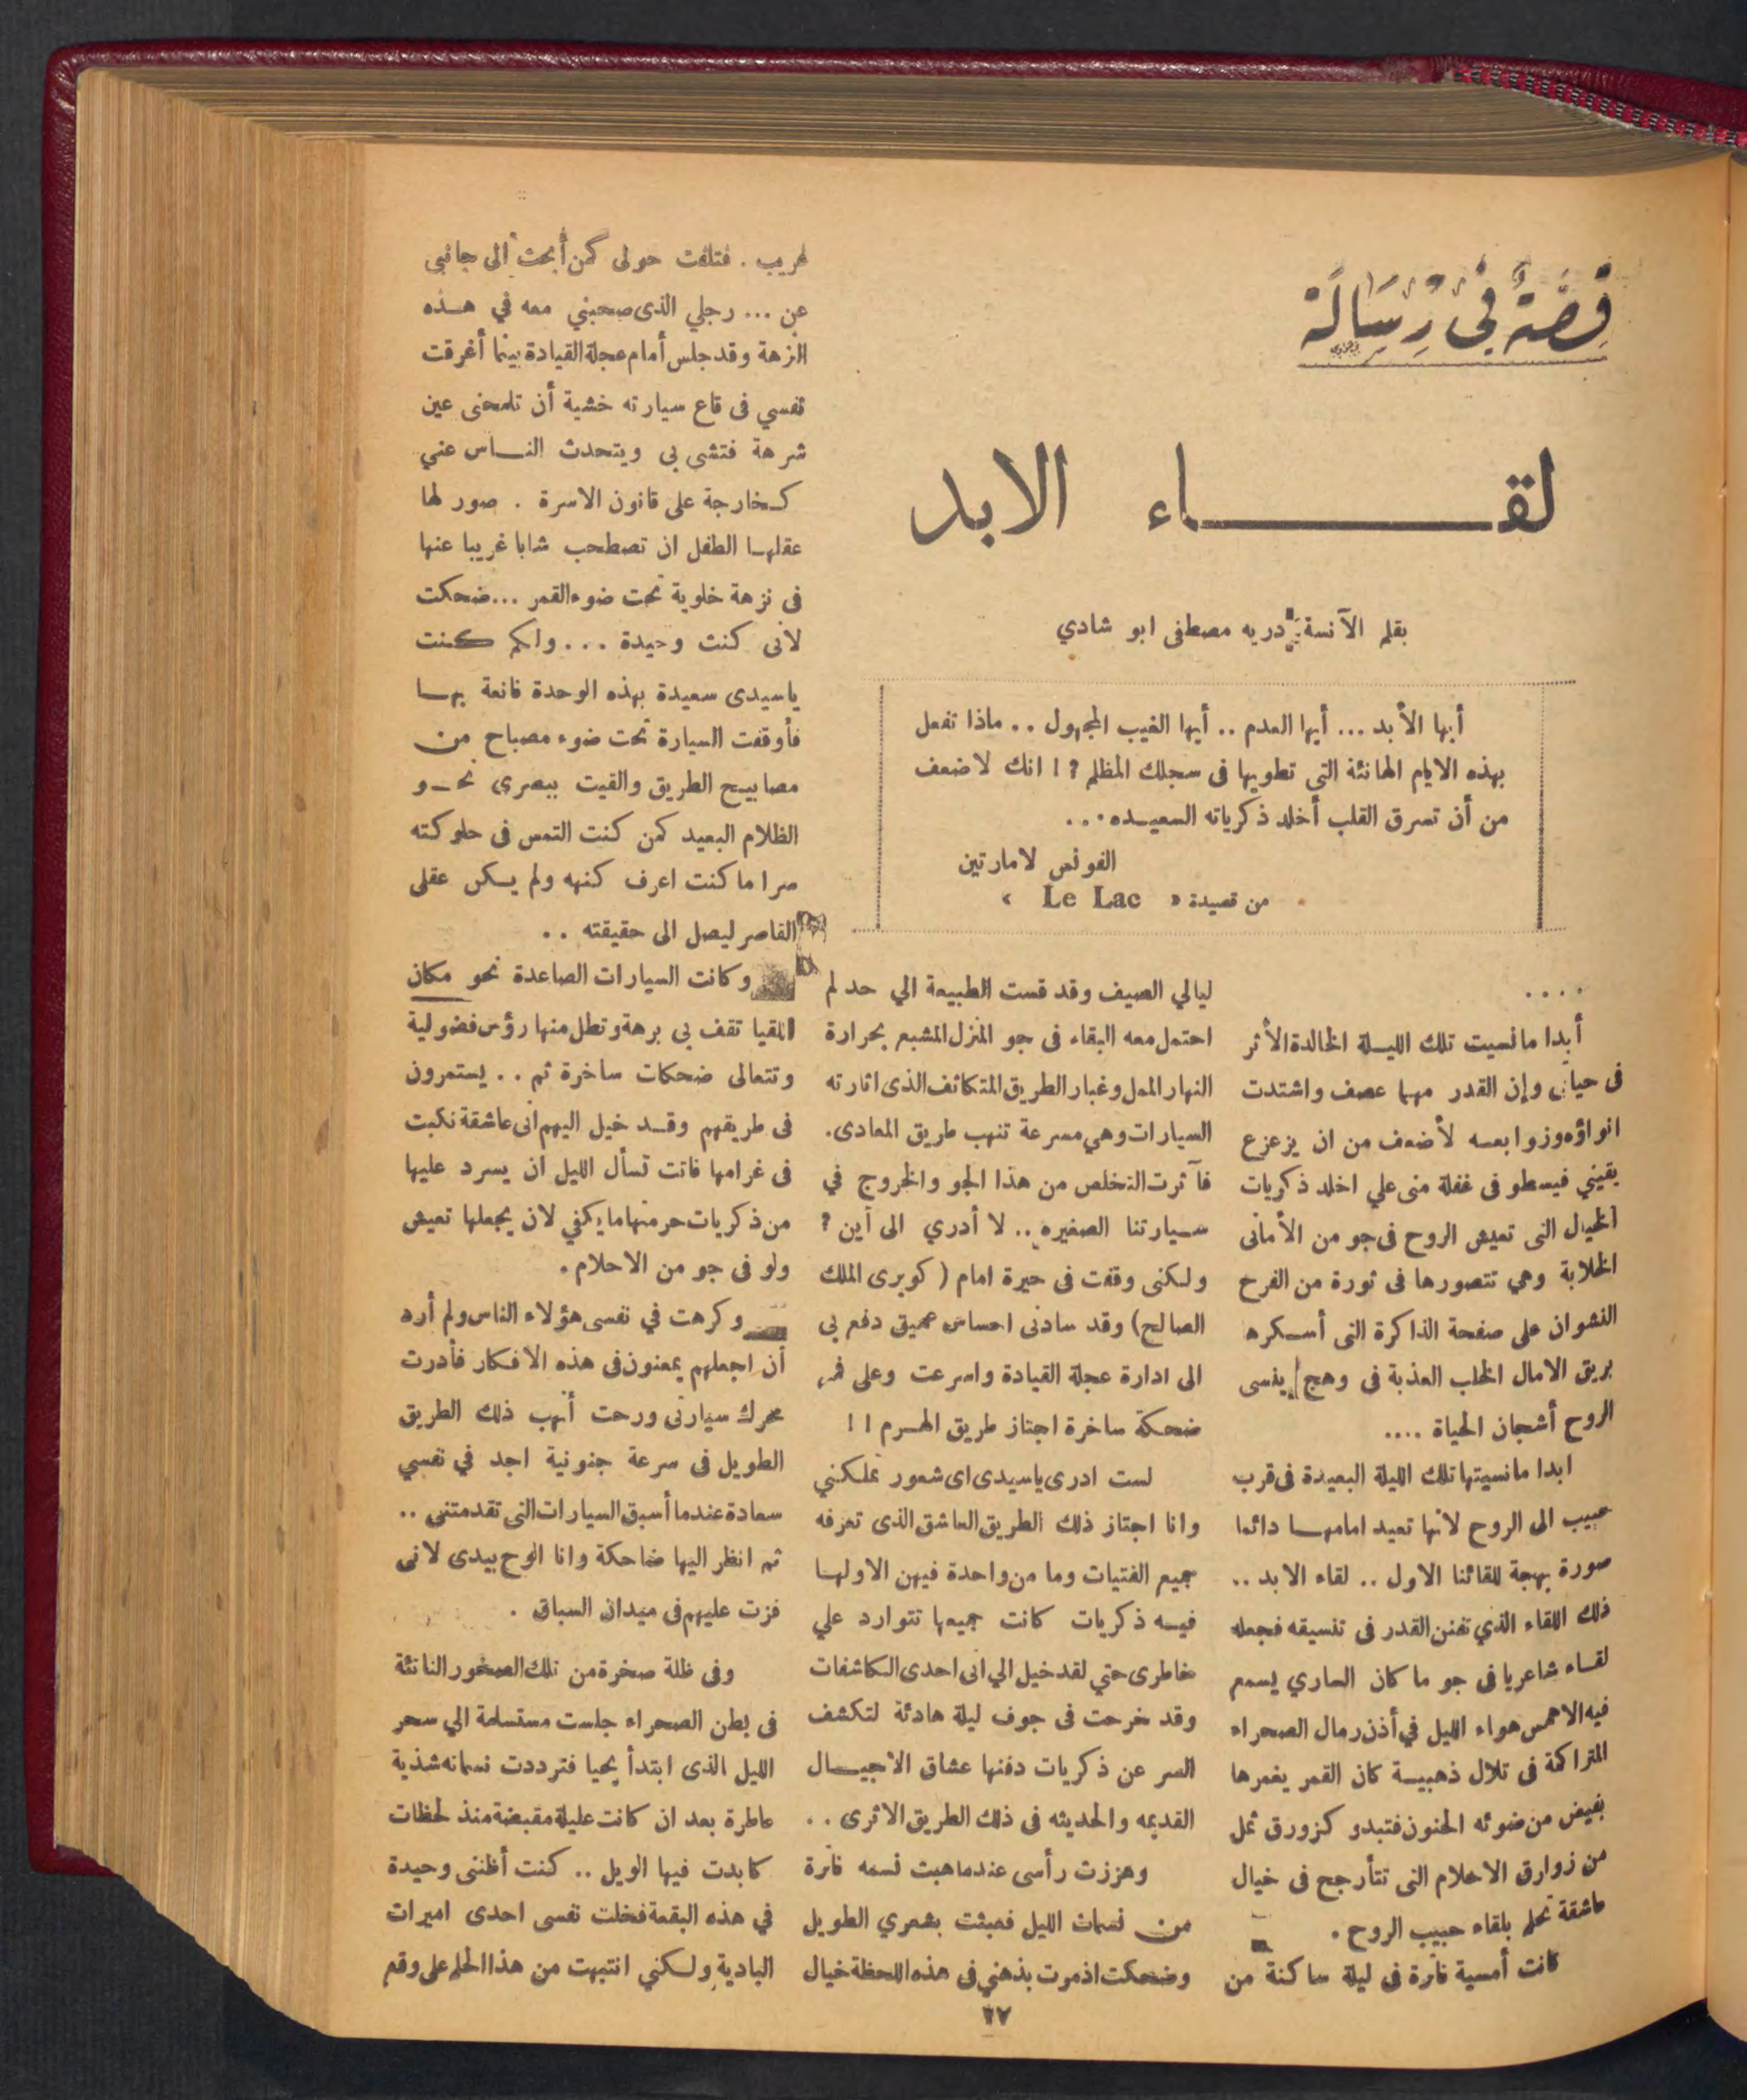 قِصَّةٌ فِى رِسَالَة
لقـــــاء الابد
بقلم الآنسة دريه مصطفى ابو شادي
أيها الأبد ... أيها العدم .. أيها الغيب المجهول .. ماذا تفعل
بهذه الايام الهانئة التى تطويها فى سجلك المظلم ؟ ! انك لاضعف
من أن تسرق القلب أخلد ذكرياته السعيـده ...
الفونس لامارتين
من قصيدة « Le Lac »
....
أبدا مانسيت تلك الليـلة الخالدة الأثر
فى حياتى وإن القدر مهما عصف واشتدت
انواؤه وزوابعـه لأضعف من ان يزعزع
يقيني فيسطو فى غفلة منى علي اخلد ذكريات
الخيال التى تعيش الروح فى جو من الأمانى
الخلابة وهي تتصورها فى ثورة من الفرح
النشوان على صفحة الذاكرة التى أسـكره
بريق الامال الخلب العذبة فى وهج ينسى
الروح أشجان الحياة ....
ابدا مانسيتها تلك الليلة البعيدة فى قرب
حبيب الى الروح لانها تعيد امامهـا دائما
صورة بهجة للقائنا الاول .. لقاء الابد ..
ذلك اللقاء الذي تفنن القدر فى تنسيقه فجعله
لقـاء شاعريا فى جو ما كان السارى يسمع
فيه الا همس هواء الليل في أذن رمال الصحراء
المتراكمة فى تلال ذهبيـة كان القمر يغمرها
بفيض من ضوئه الحنون فتبدو كزورق ثمل
من زوارق الاحلام التى تتأرجح فى خيال
عاشقة تحلم بلقاء حبيب الروح .
كانت أمسية فاترة فى ليلة ساكنة من
ليالي الصيف وقد قست الطبيعة الي حد لم
احتمل معه البقاء فى جو المنزل المشبع بحرارة
النهار الممل وغبار الطريق المتكاثف الذى اثارته
السيارات وهي مسرعة تنهب طريق المعادى.
فآثرت التخلص من هذا الجو والخروج في
سـيارتنا الصغيره .. لا أدري الى أين ؟
ولكنى وقفت فى حيرة امام ( كوبرى الملك
الصالح) وقد سادنى احساس عميق دفع بى
الى ادارة عجلة القيادة واسرعت وعلى فمى
ضحكة ساخرة اجتاز طريق الهـرم ! !
لست ادرى ياسيدى اى شعور تملكنى
وانا اجتاز ذلك الطريق العاشق الذى تعرفه
جميع الفتيات وما من واحدة فيهن الاولهـا
فيـه ذكريات كانت جميعها تتوارد علي
خاطرى حتي لقد خيل الي انى احدى الكاشفات
وقد خرجت فى جوف ليلة هادئة لتكشف
السر عن ذكريات دفنها عشاق الاجيـال
القديمه والحديثه فى ذلك الطريق الاثرى ..
وهززت رأسى عندما هبت نسمه فاترة
مـن نسمات الليل فعبثت بشعري الطويل
وضحكت اذ مرت بذهني فى هذه اللحظة خيال
غريب . فتلفت حولى كمن أبحث الى جانبى
عن ... رجلي الذى صحبني معه في هـذه
النزهة وقد جلس أمام عجلة القيادة بينما أغرقت
نفسي فى قاع سيارته خشية أن تلمحنى عين
شرهة فتشى بى ويتحدث النـاس عني
كـخارجة على قانون الاسرة . صور لها
عقلهـا الطفل ان تصطحب شابا غريبا عنها
فى نزهة خلوية تحت ضوء القمر ... ضحكت
لأنى كنت وحيدة ... ولكم كـنت
ياسيدى سعيدة بهذه الوحدة قانعة بهـا
فأوقفت السيارة تحت ضوء مصباح من
مصابيـح الطريق والقيت ببصرى نحـو
الظلام البعيد كمن كنت التمس فى حلوكته
سرا ما كنت اعرف كنهه ولم يـكن عقلى
القاصر ليصل الى حقيقته ..
وكانت السيارات الصاعدة نحو مكان
اللقيا تقف بى برهة وتطل منها رؤس فضولية
وتتعالى ضحكات ساخرة ثم .. يستمرون
فى طريقهم وقـد خيل اليهم انى عاشقة نكبت
فى غرامها فاتت تسأل الليل ان يسرد عليها
من ذكريات حرمتها ما يكفي لان يجعلها تعيش
ولو فى جو من الاحلام .
وكرهت في نفسى هؤلاء الناس ولم أرد
أن اجعلهم يمعنون فى هذه الافكار فأدرت
محرك سيارتى ورحت أنهب ذلك الطريق
الطويل فى سرعة جنونية اجد في نفسي
سعادة عندما أسبق السيارات التى تقدمتنى ..
ثم انظر اليها ضاحكة وانا الوح بيدى لانى
فزت عليهم فى ميدان السباق .
وفى ظلة صخرة من تلك الصخور الناتئة
فى بطن الصحراء جلست مستسلمة الي سحر
الليل الذى ابتدأ يحيا فترددت نسماته شذية
عاطرة بعد ان كانت عليلة مقبضة منذ لحظات
كابدت فيها الويل .. كنت أظننى وحيدة
في هذه البقعة فخلت نفسى احدى اميرات
البادية ولـكني انتبهت من هذا الحلم على وقع
٢٧